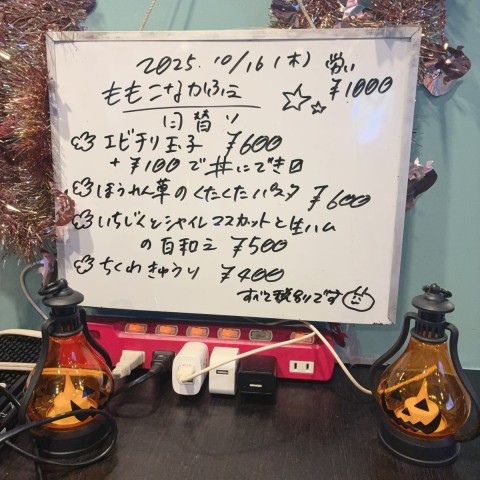 2025.10/16(木)
¥1000
ももこなかふぇ
日替り
エビチリ玉子 ¥600
+¥100で丼にでき□
ほうれん草のくたくたパスタ ¥600
いちじくとシャインマスカットと生ハム
の白和え ¥500
ちくわきゅうり ¥400
すべて税別です